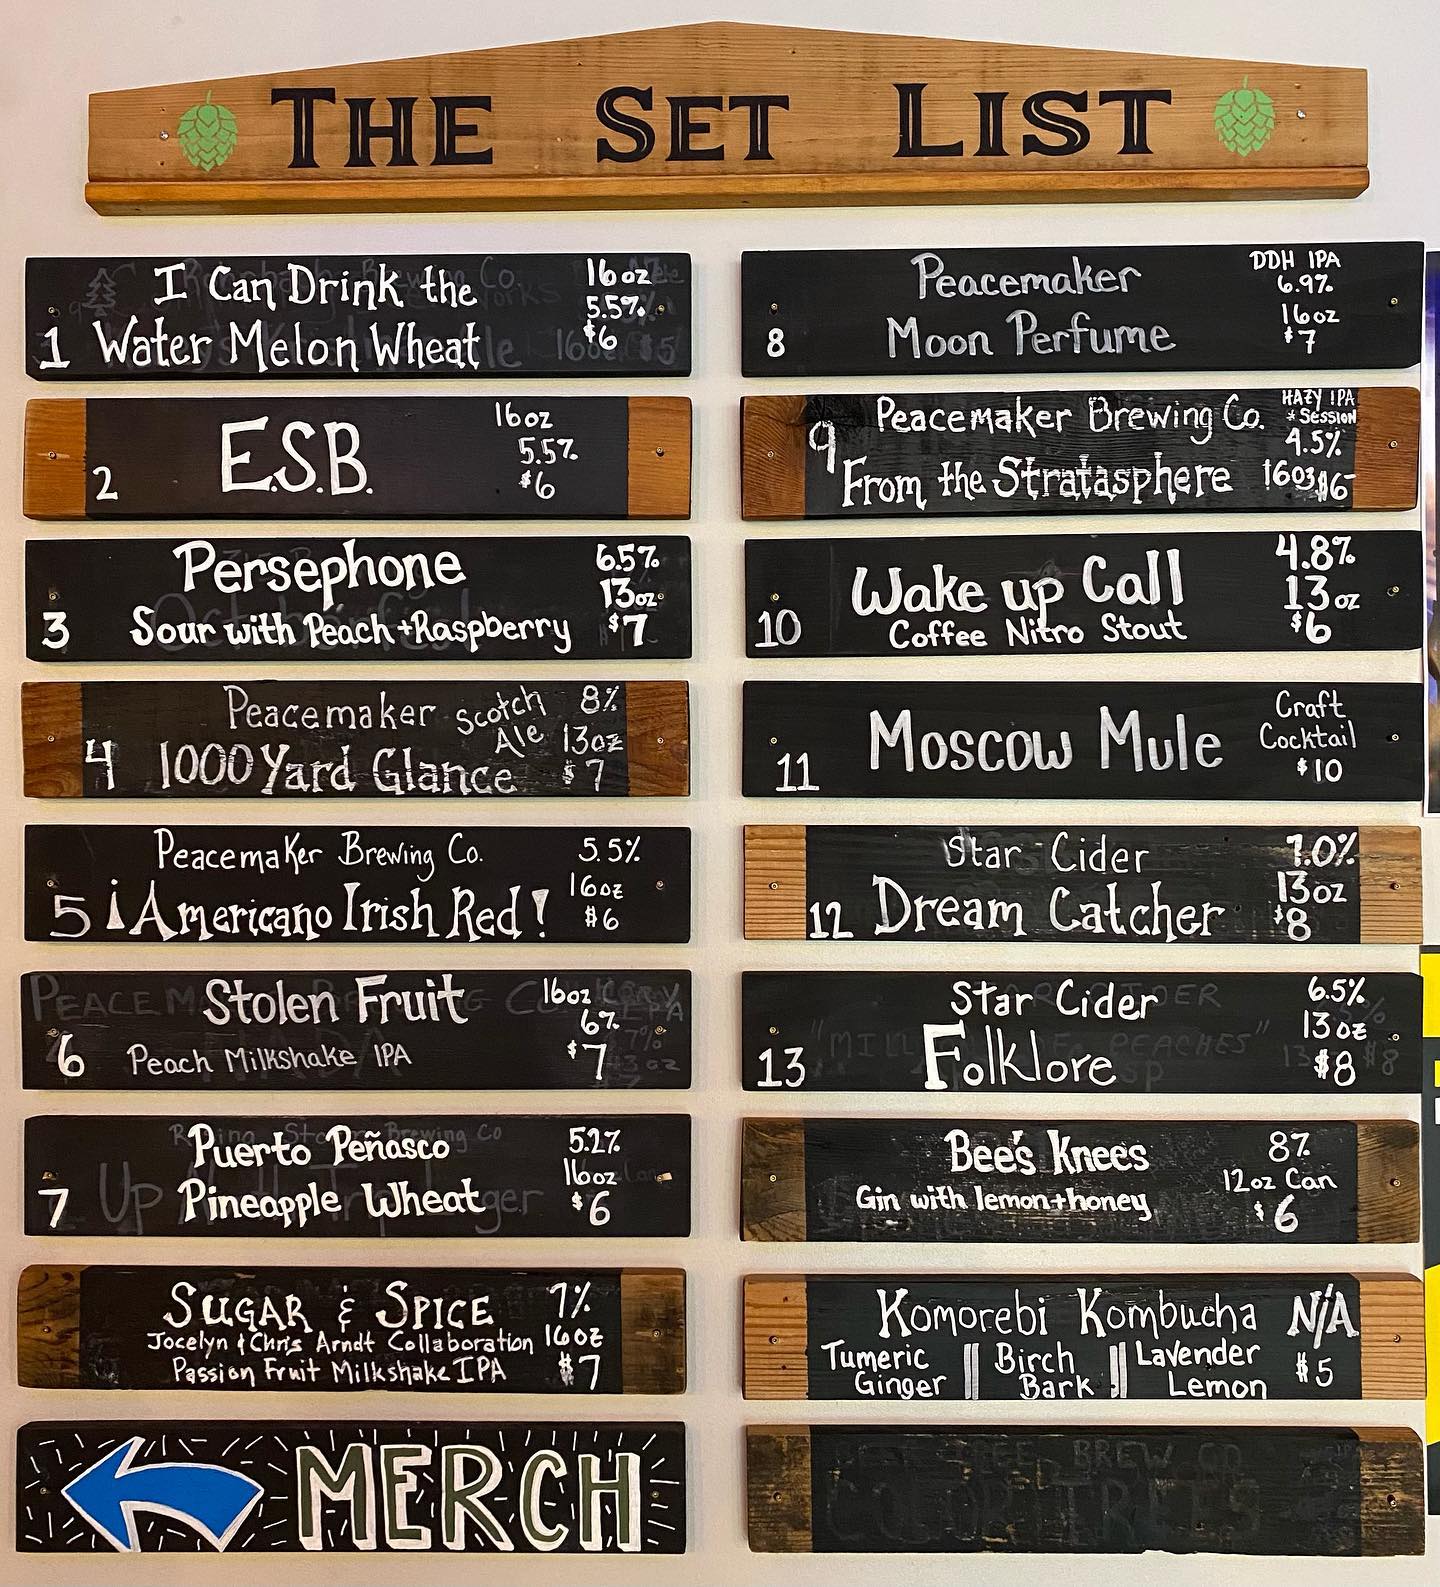 THE SET LIST
I Can Drink the
Water Melon Wheat
16oz
5.5%
$6
1
E.S.B.
16oz
5.5%
$6
2
Persephone
Sour with Peach+Raspberry
6.5%
13oz
$7
3
Peacemaker Scotch Ale
1000 Yard Glance
8%
13oz
$7
4
Peacemaker Brewing Co.
¡Americano Irish Red!
5.5%
16oz
$6
5
Stolen Fruit
Peach Milkshake IPA
16oz
6%
$7
6
Puerto Peñasco
Pineapple Wheat
5.2%
16oz
$6
7
SUGAR & SPICE
Jocelyn & Chris Arndt Collaboration
Passion Fruit Milkshake IPA
7%
16oz
$7
MERCH
Peacemaker
Moon Perfume
DDH IPA
6.9%
16oz
$7
8
Peacemaker Brewing Co.
From the Stratasphere
HAZY IPA
*SESSION
4.5%
16oz $6
9
Wake up Call
Coffee Nitro Stout
4.8%
13oz
$6
10
Moscow Mule
Craft
Cocktail
$10
11
Star Cider
Dream Catcher
7.0%
13oz
$8
12
Star Cider
Folklore
6.5%
13oz
$8
13
Bee's Knees
Gin with lemon+honey
8%
12oz Can
$6
Komorebi Kombucha N/A
Tumeric Ginger || Birch Bark || Lavender Lemon
$5